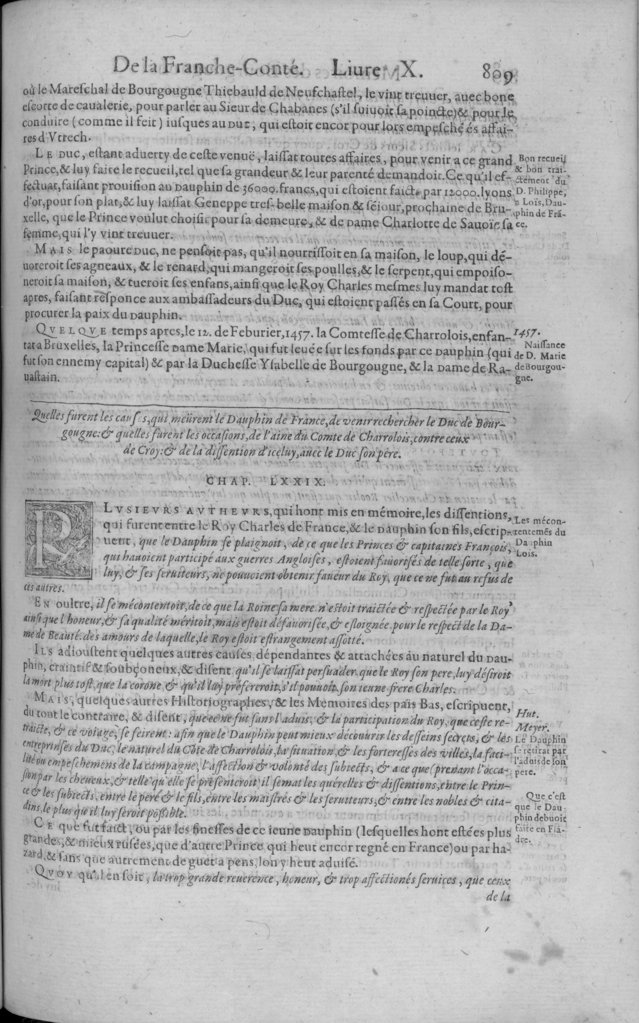 De la Franche-Conté. Liure X. 809
où le Mareschal de Bourgougne Thiebauld de Neufchastel, le vint treuuer, auec bone
escorte de caualerie, pour parler au Sieur de Chabanes (s'il suiuoit sa poincte) & pour le
conduire (comme il feit) iusques au Duc, qui estoit encor pour lors empesché és affai-
res d'Vtrech.
Le Duc, estant aduerty de ceste venuë, laissat toutes affaires, pour venir a ce grand
Prince, & luy faire le recueil, tel que sa grandeur & leur parenté demandoit. Ce qu'il ef-
fectuat, faisant prouision au Dauphin de 36000. francs, qui estoient faicts par 12000. lyons
d'or, pour son plat, & luy laissat Geneppe tres-belle maison & séiour, prochaine de Bru-
xelle, que le Prince voulut choisir pour sa demeure, & de Dame Charlotte de Sauoie sa
femme, qui l'y vint treuuer.
Bon recueil
& bon trai-
ctement du
D. Philippe,
a Loïs, Dau-
phin de Frá-
ce.
Mais le paoure Duc, ne pensoit pas, qu'il nourrissoit en sa maison, le loup, qui dé-
uoreroit ses agneaux, & le renard, qui mangeroit ses poulles, & le serpent, qui empoiso-
neroit sa maison, & tueroit ses enfans, ainsi que le Roy Charles mesmes luy mandat tost
apres, faisant response aux ambassadeurs du Duc, qui estoient passés en sa Court, pour
procurer la paix du Dauphin.
Quelque temps apres, le 12. de Feburier, 1457. la Comtesse de Charrolois, enfan-
tat a Bruxelles, la Princesse Dame Marie, qui fut leuée sur les fonds par ce Dauphin (qui
fut son ennemy capital) & par la Duchesse Ysabelle de Bourgougne, & la Dame de Ra-
uastain.
1457.
Naissance
de D. Marie
de Bourgou-
gne.
Quelles furent les causes, qui meurent le Dauphin de France, de venir rechercher le Duc de Bour-
gougne: & quelles furent les occasions, de l'aine du Comte de Charrolois, contre ceux
de Croy: & de la dissention d'iceluy, auec le Duc son pére.
CHAP. LXXIX.
PLvsievrs avthevrs, qui hont mis en mémoire, les dissentions,
qui furent entre le Roy Charles de France, & le Dauphin son fils, escrip-
uent, que le Dauphin se plaignoit, de ce que les Princes & capitaines François,
qui hauoient participé aux guerres Angloises, estoient fauorisés de telle sorte, que
luy, & ses seruiteurs, ne pouuoient obtenir faueur du Roy, que ce ne fut au refus de
ces autres.
Les mécon-
tentemés du
Dauphin
Lois.
En oultre, il se mécontentoit, de ce que la Roine sa mere n'estoit traictée & respectée par le Roy
ainsi que l'honeur, & sa qualité méritoit, mais estoit défauorisée, & esloignée pour le respect de la Da-
me de Beauté: des amours de laquelle, le Roy estoit estrangement assotté.
Ils adioustent quelques autres causes dépendantes & attachées au naturel du Dau-
phin, craintif & soubçoneux, & disent qu'il se laissat persuader, que le Roy son pere, luy désiroit
la mort plus tost, que la corone, & qu'il luy préfereroit, s'il pouuoit, son ieune frere Charles.
Mais, quelques autres Historiographes, & les Mémoires des païs Bas, escripuent,
du tout le contraire, & disent, que ce ne fut sans l'aduis, & la participation du Roy, que ceste re-
traicte, & ce voiage, se feirent: afin que le Dauphin peut mieux découurir les desseins secrets, & les
entreprinses du Duc, le naturel du Cōte de Charrolois, la situation, & les forteresses des villes, la faci-
lité ou empeschemens de la campagne, l'affection & volonté des subiects, & a ce que (prenant l'occa-
sion par les cheueux, & telle qu'elle se présenteroit) il semat les querelles & dissentions, entre le Prin-
ce & les subiects, entre le péré & le fils, entre les maistrés & les seruiteurs, & entre les nobles & cita-
dins, le plus qu'il luy seroit possible.
Hut.
Meyer.
Le Dauphin
se retirat par
l'aduis de son
pere.
Que c'est
que le Dau
phin debuoit
faire en Flá-
dre.
Ce que fut faict, ou par les finesses de ce ieune Dauphin (lesquelles hont estées plus
grandes, & mieux rusées, que d'autre Prince qui heut encor regné en France) ou par ha-
zard, & sans que autrement de guet a pens, lon y heut aduisé.
Qvoy qu'il en soit, la trop grande reuerence, honeur, & trop affectionés seruices, que ceux
de la